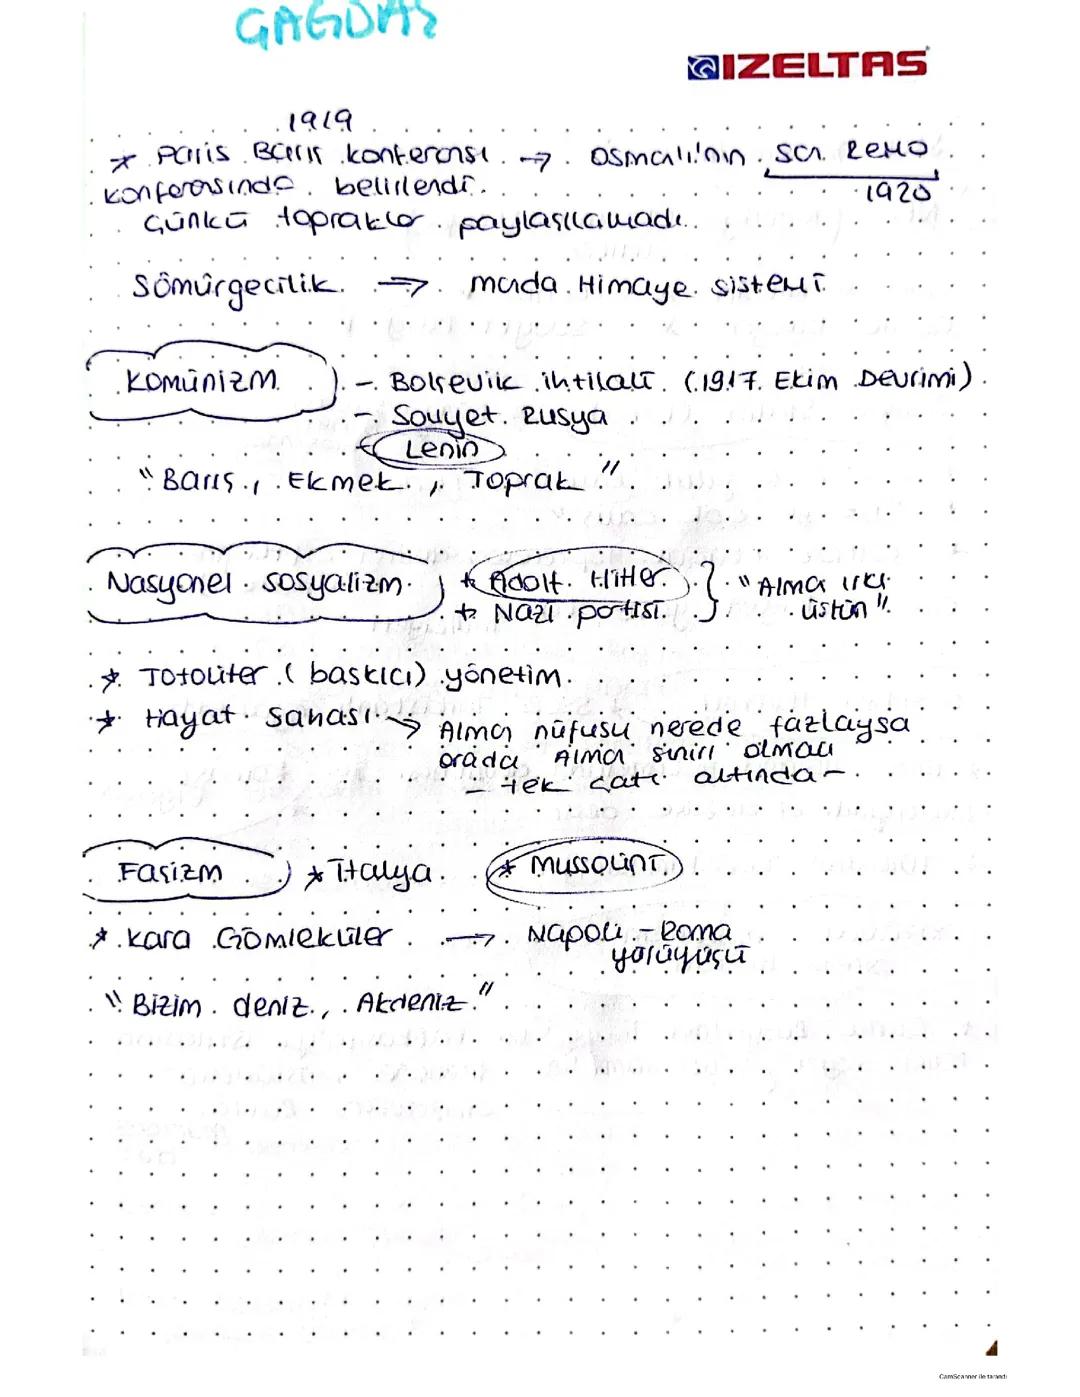 ÇAĞDAŞ
IZELTAS
1919
* Paris Barış konferansı → Osmanlı'nın San Remo
konferansında belirlendi. 1920
Çünkü topraklar paylaşılamadı.
Sömürgecilik → manda Himaye sistemi
Komünizm - Bolşevik ihtilali (1917 Ekim Devrimi)
- Sovyet Rusya
Lenin
"Barış, Ekmek, Toprak"
Nasyonel sosyalizm * Adolf Hitler } "Alman ırkı
* Nazi partisi üstün"
* Totaliter (baskıcı) yönetim
* Hayat Sahası → Alman nüfusu nerede fazlaysa
orada Alman sınırı olmalı
- tek çatı altında -
Faşizm * İtalya * Mussolini
* Kara Gömlekliler → Napoli - Roma
yürüyüşü
"Bizim deniz, Akdeniz"
CamScanner ile tarandı